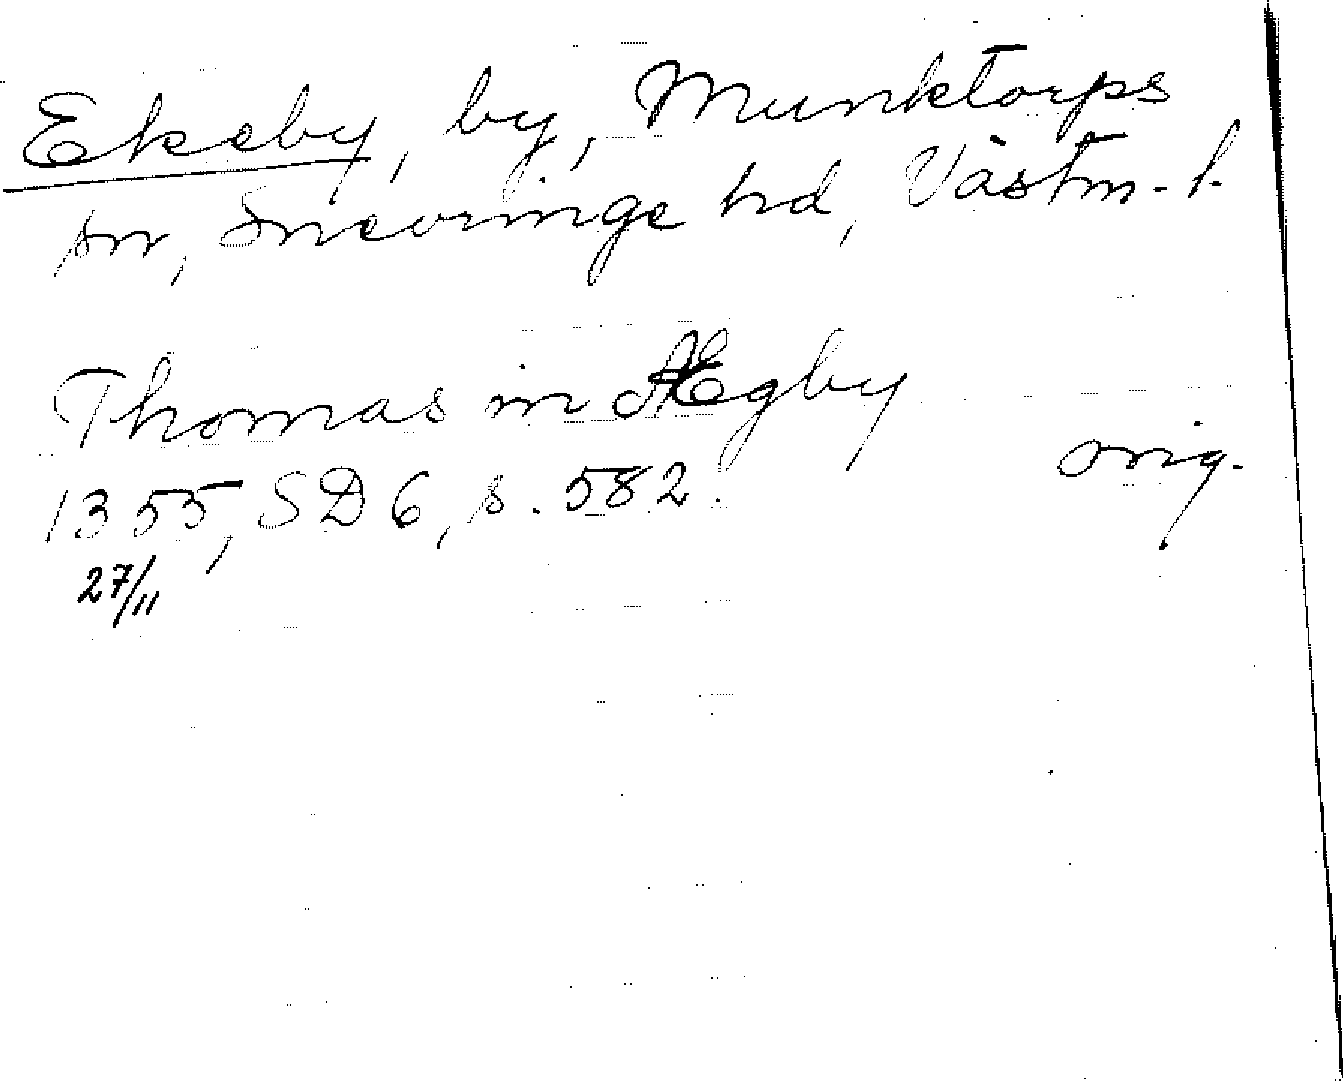 Ekeby, by, Munktorps
sn, Snevringe hd, Västm. l.
Thomas in Ægby
orig.
1355, SD 6, s. 582.
27/11